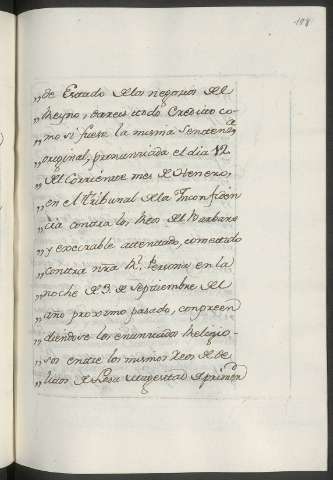 108
„de Estado de los negocios del
„Reyno, dareis todo Credito co-
„mo si fuese la misma Sentencia
„original, pronunciada el dia 12
„del Corriente mes de Henero,
„en el tribunal de la Inconfiden
„cia contra los Reos del Barbaro
„y execrable attentado, cometido
„contra nra Rl. Persona en la
„noche de 3. de Septiembre del
„año proximo pasado, compreen
„diendose los enunciados Religio-
„sos entre los mismos Reos de De
„litos de Lesa Magestad de primera